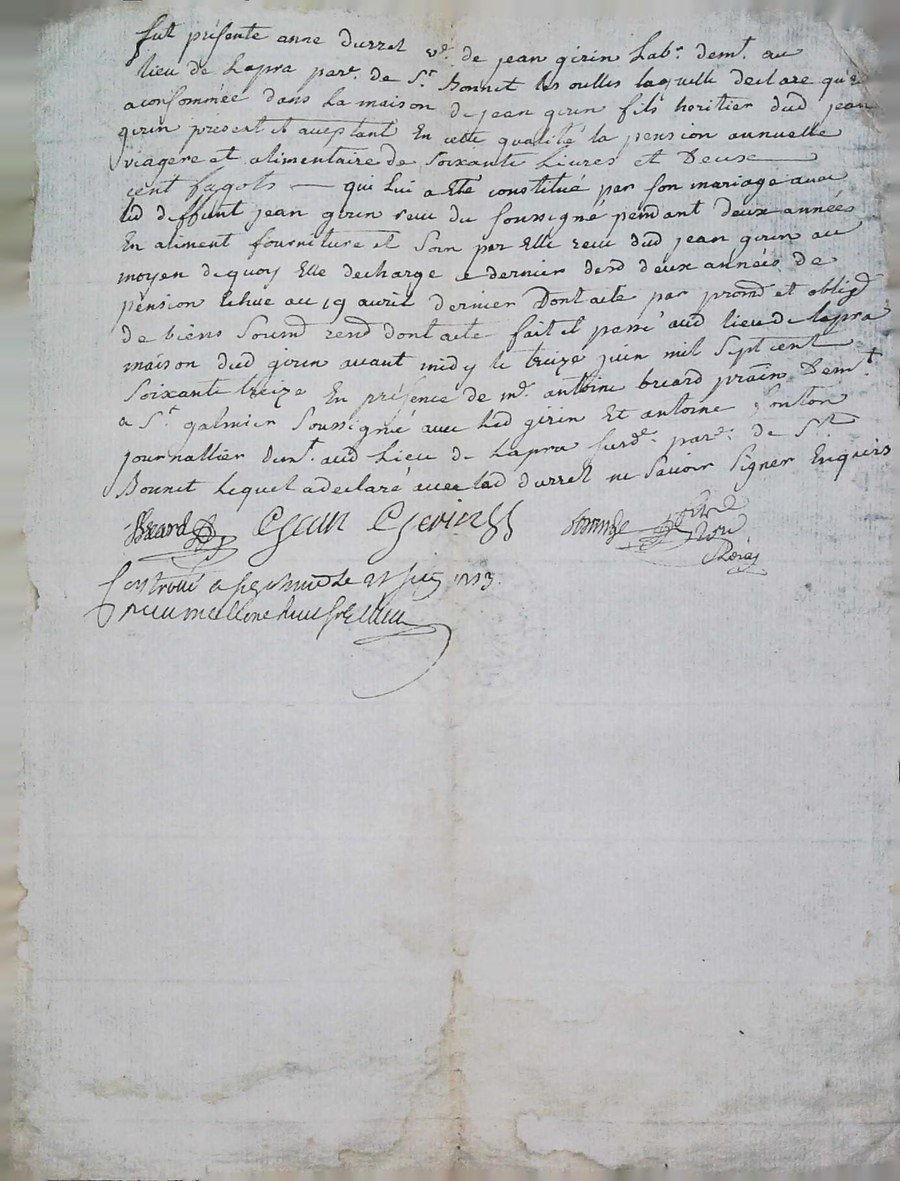 fut présente anne durret ve. de jean girin labr. demt. au
lieu de Lapra parr. de St. Bonnet les oulles laquelle declare qu'elle
a consommée dans la maison de jean girin fils heritier dud jean
girin présent et aceptant En cette qualité la pension annuelle
viagere et alimentaire de soixante Livres et Deux
cent fagots — qui lui a été constitué par son mariage avec
led deffunt jean girin reçu du soussigné pendant deux années
En aliment fourniture et soin par Elle recu dud jean girin au
moyen dequoy Elle decharge ce dernier desd deux années de
pension Echue au 19 avril dernier Dont acte par promd et obligd
de biens soumd rend dont acte fait et passé aud lieu de Lapra
maison dud girin avant midy le treize juin mil sept cent
soixante treize En présence de me. antoine beard pratn Demt.
a St. galmier soussigné avec led girin Et antoine
journallier demt. aud Lieu de Lapra surde. parr. de St.
Bonnet lequel a declaré avec lad durret ne savoir signer Enquis
Beard Jean Girin
Controllé a le 21 juin 1773.